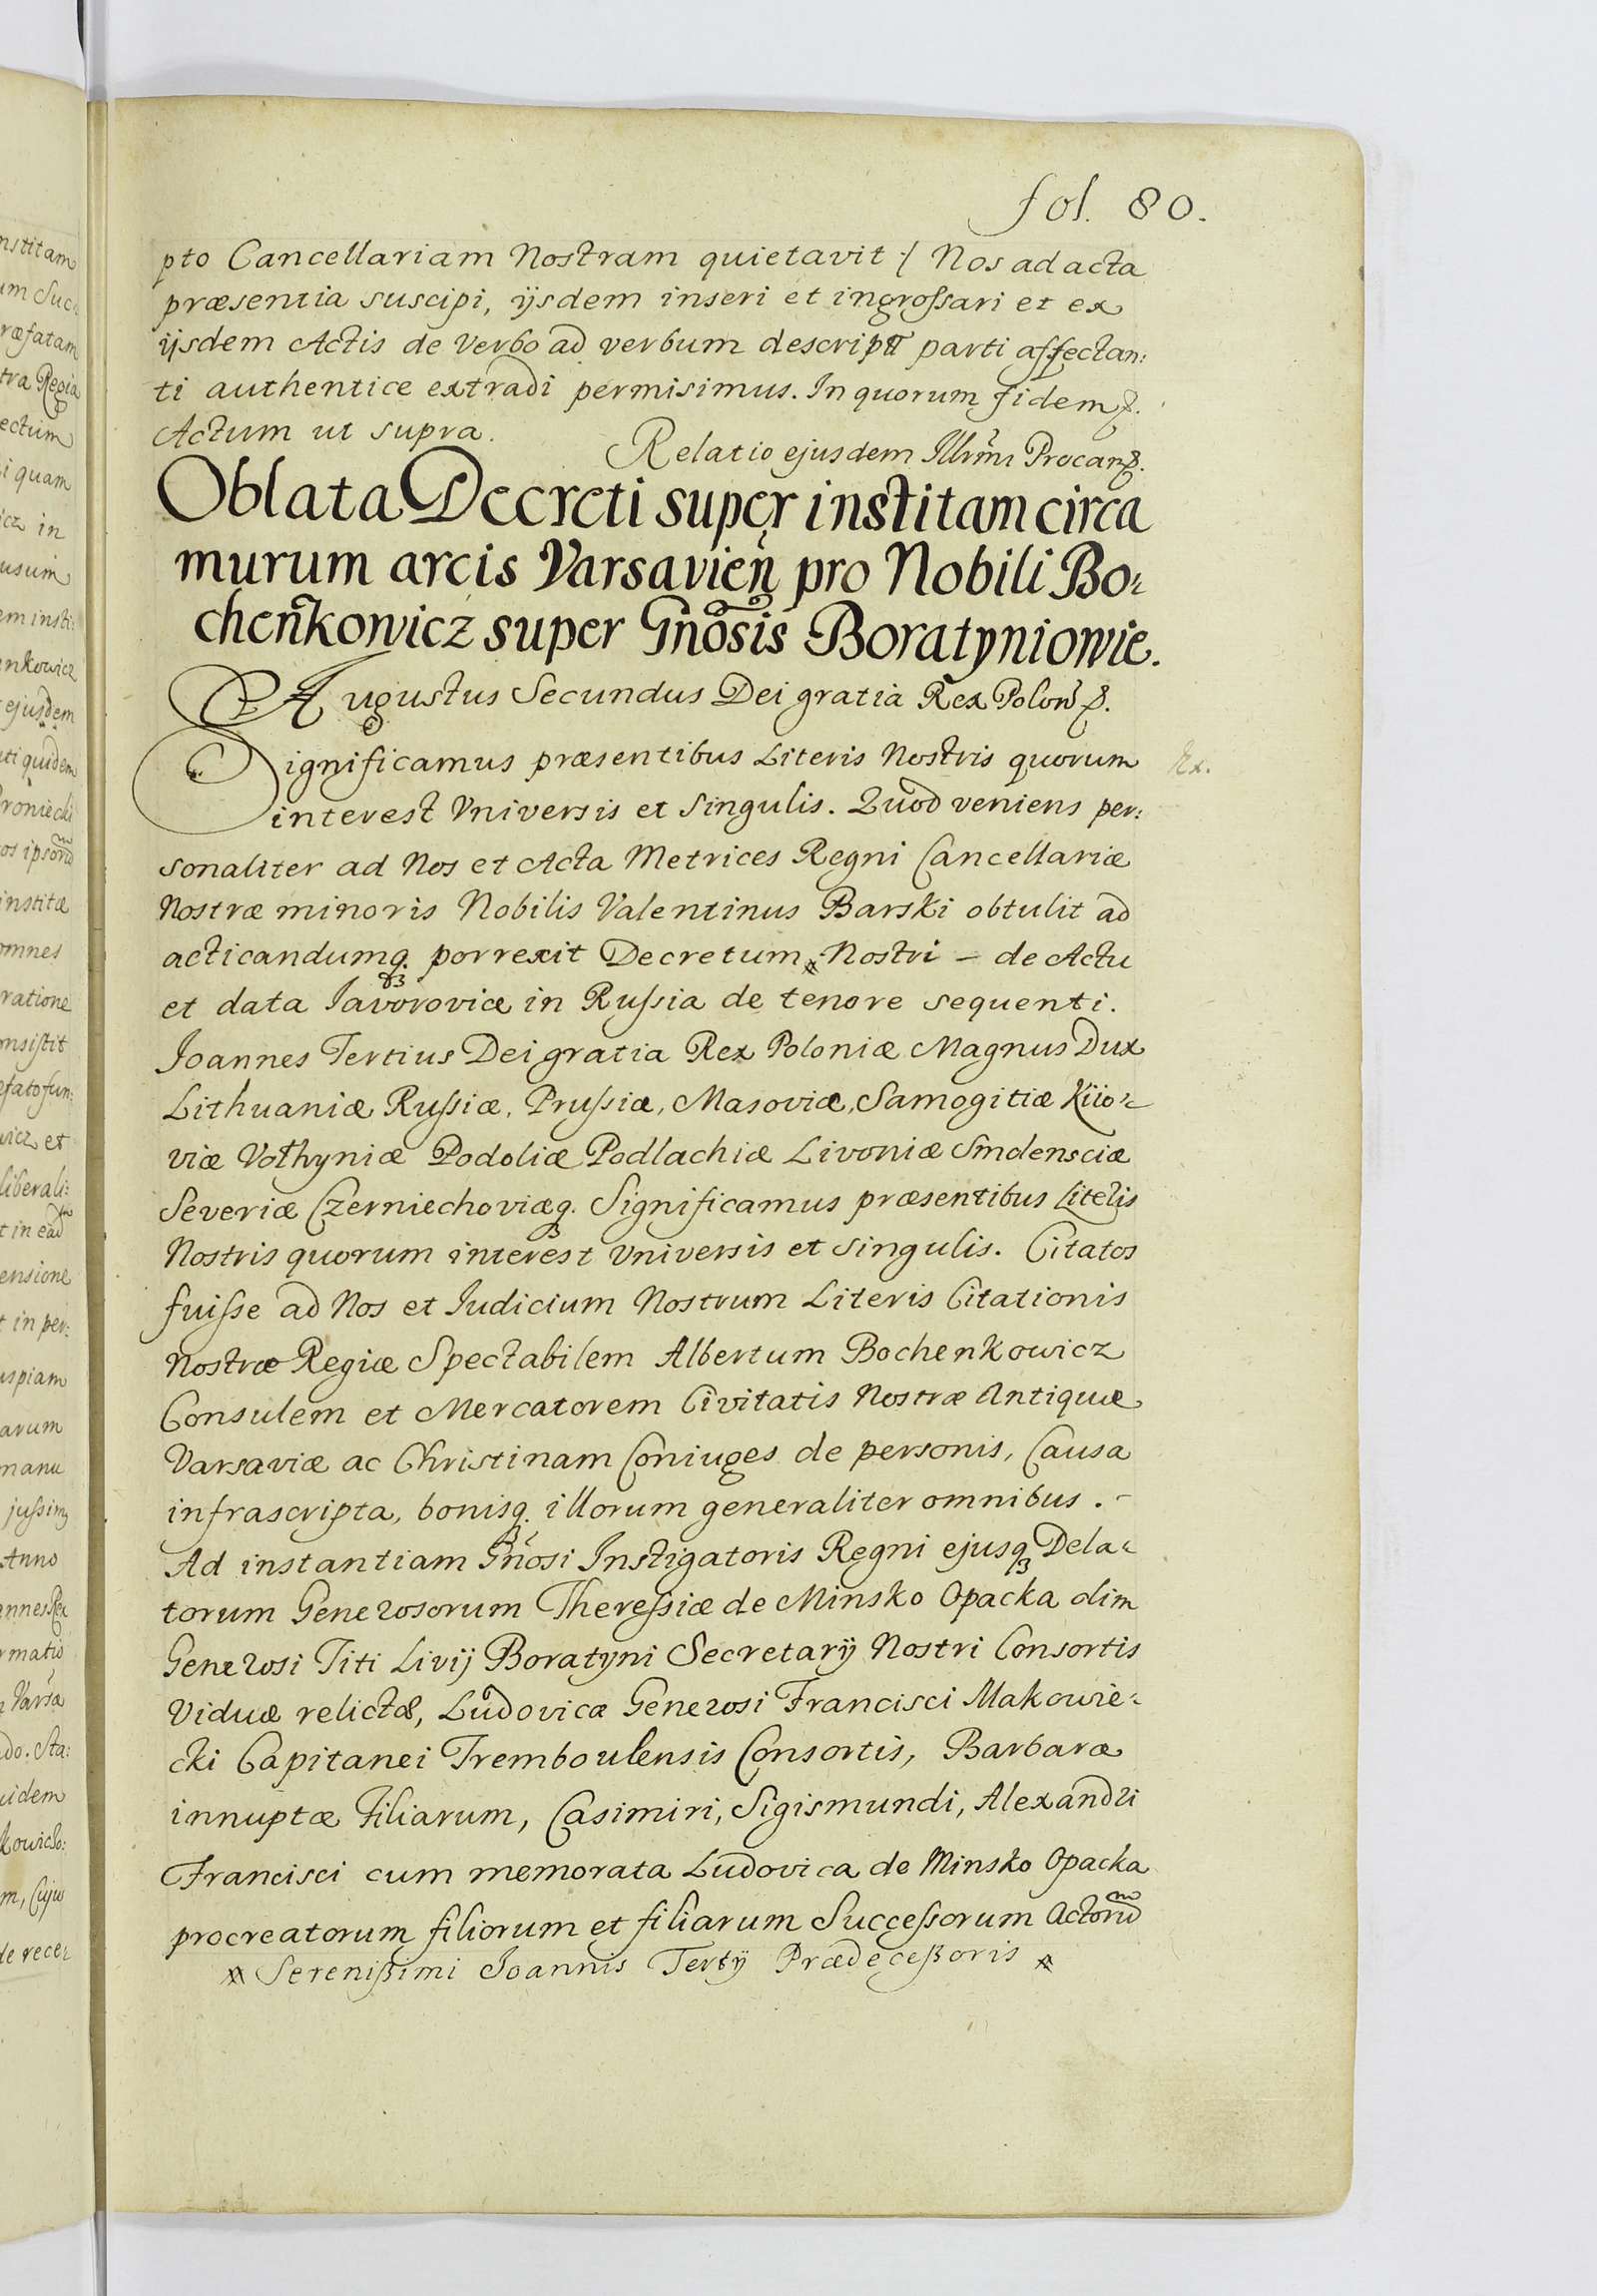 fol. 80.
pto Cancellariam Nostram quietavit ./ Nos ad acta
præsentia suscipi, ijsdem inseri et ingrossari et ex
ijsdem Actis de verbo ad verbum descript parti affectan:
ti authentice extradi permisimus. In quorum fidem &.
Actum ut supra.
Relatio ejusdem Illrmi Procan&.
Oblata Decreti super institam circa
murum arcis Varsavień pro Nobili Bo-
cheńkowicz super Gnosis Boratyniowie.
Augustus Secundus Dei gratia Rex Polon &.
Significamus præsentibus Literis Nostris quorum
interest Vniversis et Singulis. Quod veniens per:
sonaliter ad Nos et Acta Metrices Regni Cancellariæ
Nostræ minoris Nobilis Valentinus Barski obtulit ad
acticandumq₃ porrexit Decretum Nostri – de Actu
et data Iavoroviæ in Russia de tenore sequenti.
Ioannes Tertius Dei gratia Rex Poloniæ Magnus Dux
Lithuaniæ Russiæ, Prussiæ, Masoviæ, Samogitiæ Kiio-
viæ Vothyniæ Podoliæ Podlachiæ Livoniæ Smolensciæ
Severiæ Czerniechoviæq₃. Significamus præsentibus Literis
Nostris quorum interest Vniversis et singulis. Citatos
fuisse ad Nos et Iudicium Nostrum Literis Citationis
Nostræ Regiæ Spectabilem Albertum Bochenkowicz
Consulem et Mercatorem Civitatis Nostræ Antiquæ
Varsaviæ ac Christinam Coniuges de personis, Causa
infrascripta, bonisq₃ illorum generaliter omnibus. –
Ad instantiam Gnosi Instigatoris Regni ejusq₃ Dela-
torum Generosorum Theressiæ de Minsko Opacka olim
Generosi Titi Livij Boratyni Secretarij Nostri Consortis
Viduæ relictæ, Ludovicæ Generosi Francisci Makowie-
cki Capitanei Tremboulensis Consortis, Barbaræ
innuptæ Filiarum, Casimiri, Sigismundi, Alexandri
Francisci cum memorata Ludovica de Minsko Opacka
procreatorum filiorum et filiarum Successorum Actorũ
Serenißimi Joannis Tertij Prædeceßoris